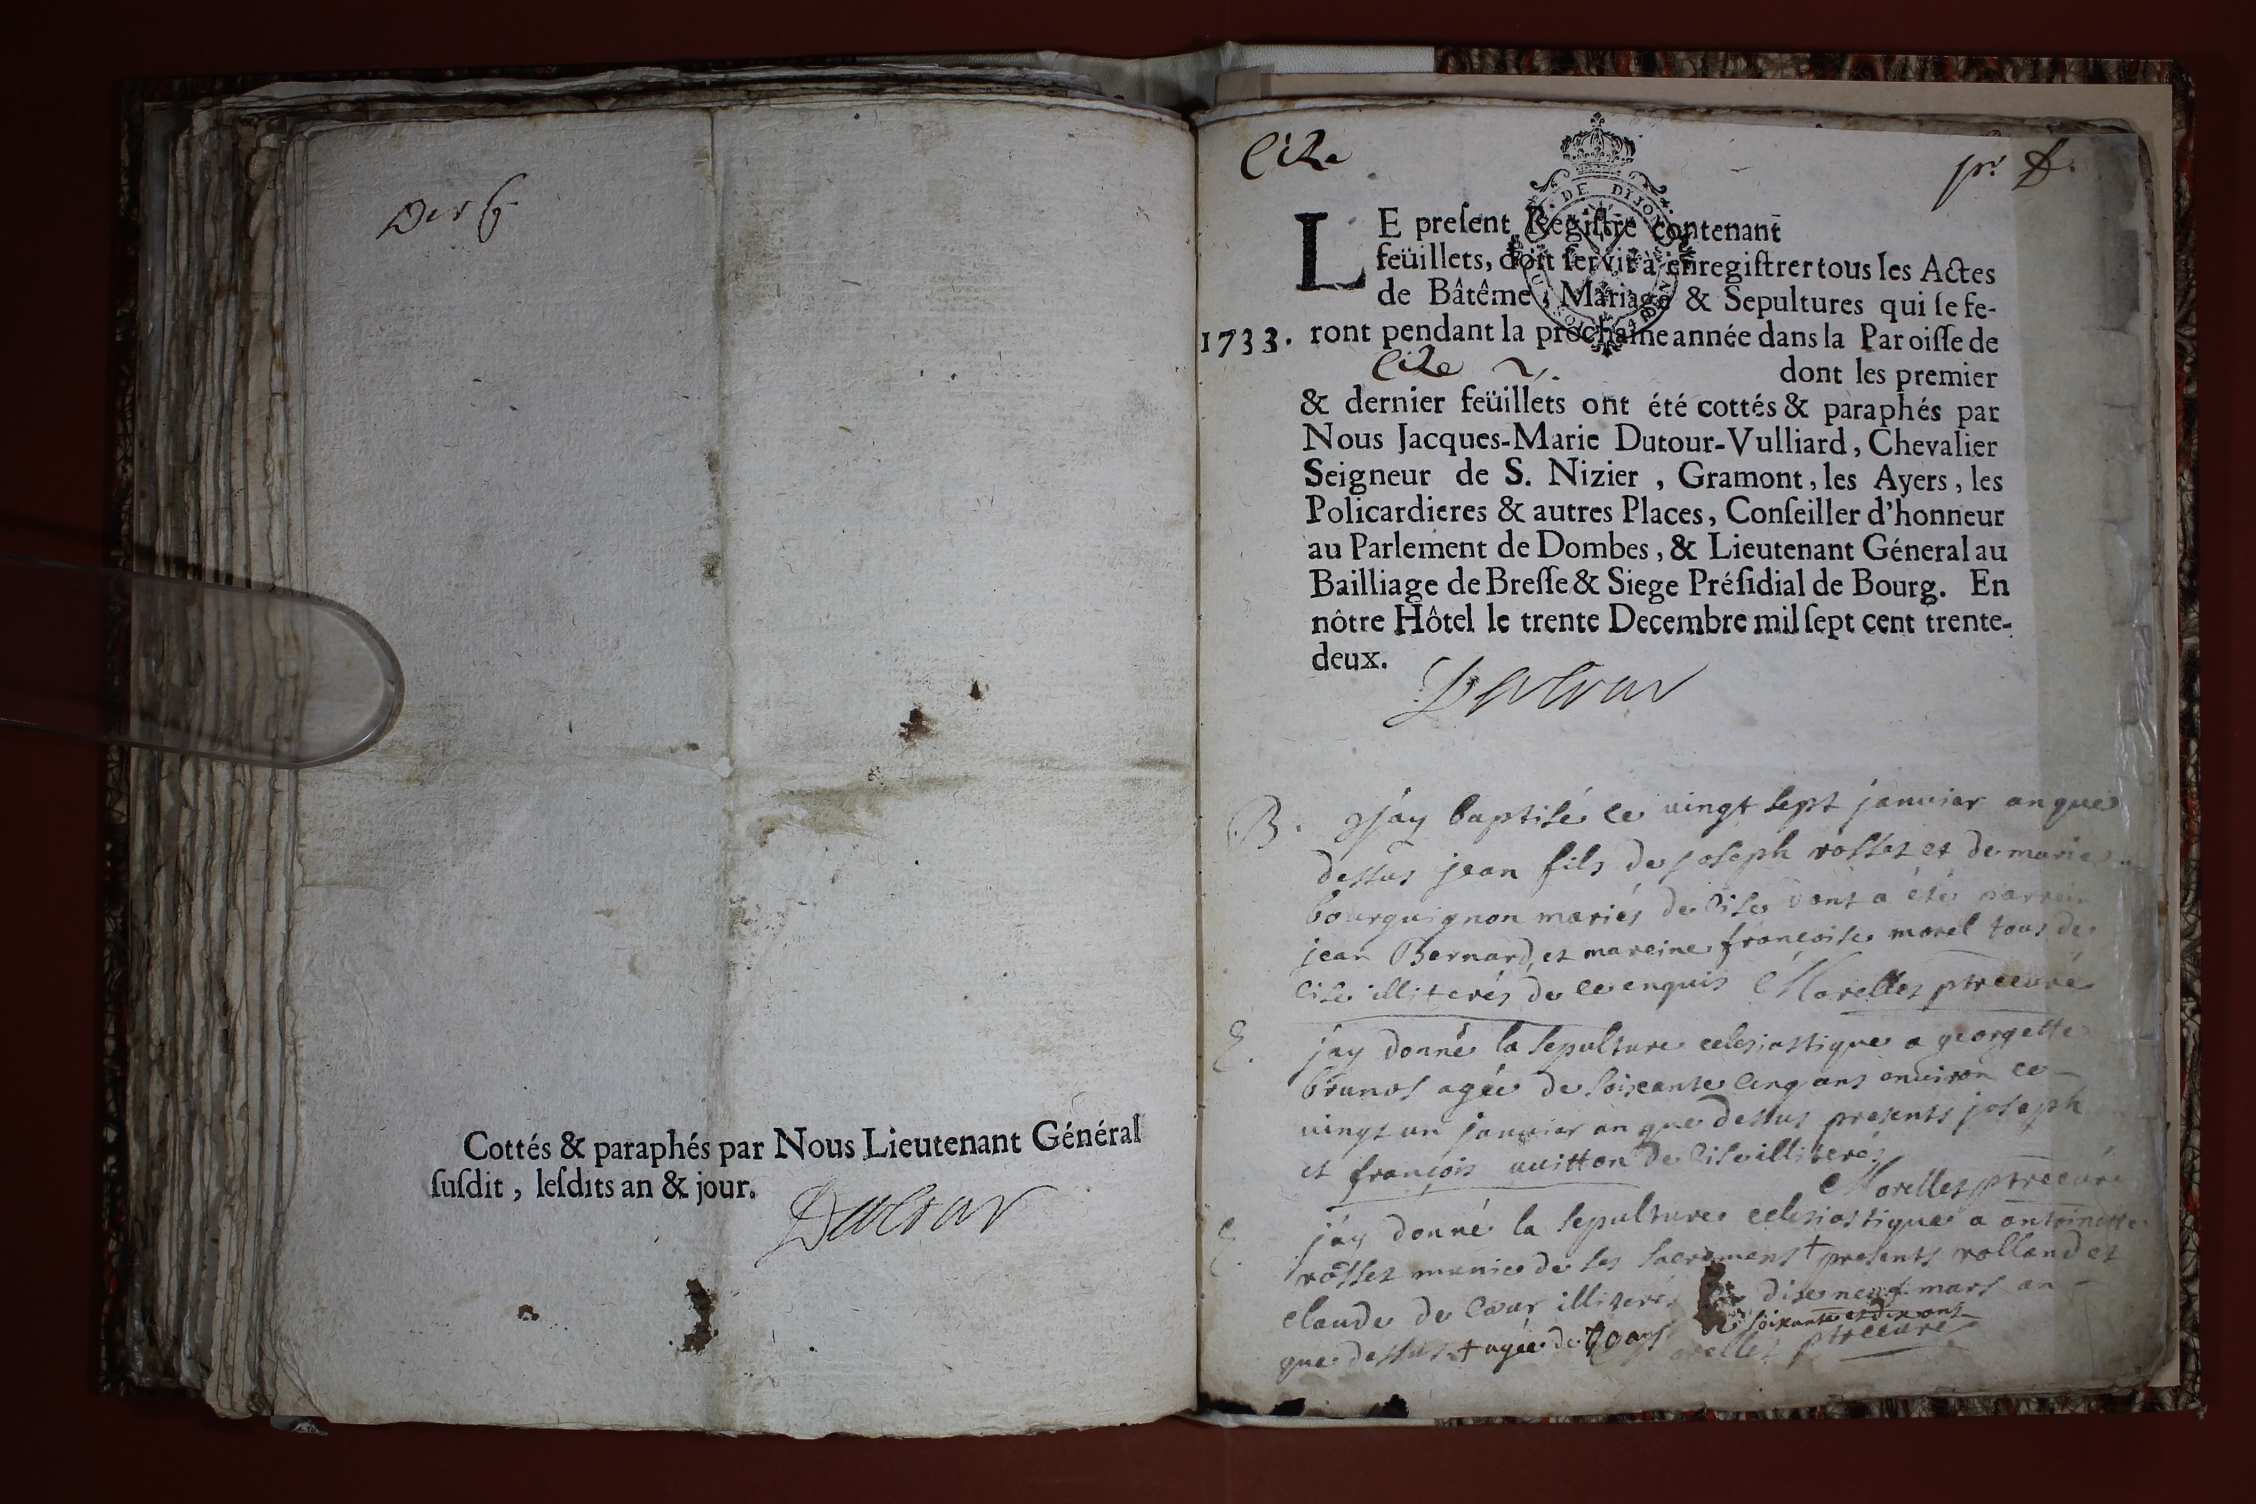 Der f.
Cottés & paraphés par Nous Lieutenant Général
suſdit, leſdits an & jour.
Dutour
Cize
pr. f.
DE DIJON
LE preſent Regiſtre contenant
feüillets, doit ſervir à enregiſtrer tous les Actes
de Bâtême, Mariage & Sepultures qui ſe fe-
1733. ront pendant la prochaine année dans la Paroiſſe de
Cize dont les premier
& dernier feüillets ont été cottés & paraphés par
Nous Jacques-Marie Dutour-Vulliard, Chevalier
Seigneur de S. Nizier, Gramont, les Ayers, les
Policardieres & autres Places, Conſeiller d'honneur
au Parlement de Dombes, & Lieutenant Géneral au
Bailliage de Breſſe & Siege Préſidial de Bourg. En
nôtre Hôtel le trente Decembre mil ſept cent trente-
deux.
Dutour
B. j'ay baptisé ce vingt sept janvier an que
dessus jean fils de joseph rosset et de marie
bourguignon mariés de Cise dont a été parrein
jean Bernard, et mareine francoise morel tous de
Cise illiterés de ce enquis Morellet ptre curé
E. jay donné la sepulture eclesiastique a georgette
brunos agée de soixante cinq ans environ ce
vingt un janvier an que dessus presents joseph
et françois vuitton de Cise illiterés
Morellet ptre curé
E. jay donné la sepulture eclesiastique a antoinette
rosset munie de ses sacremens + presents rolland et
claude de Cœur illiterés dixneuf mars an
que dessus + agée de 70 ans de soixante et dix ans
Morellet ptre curé